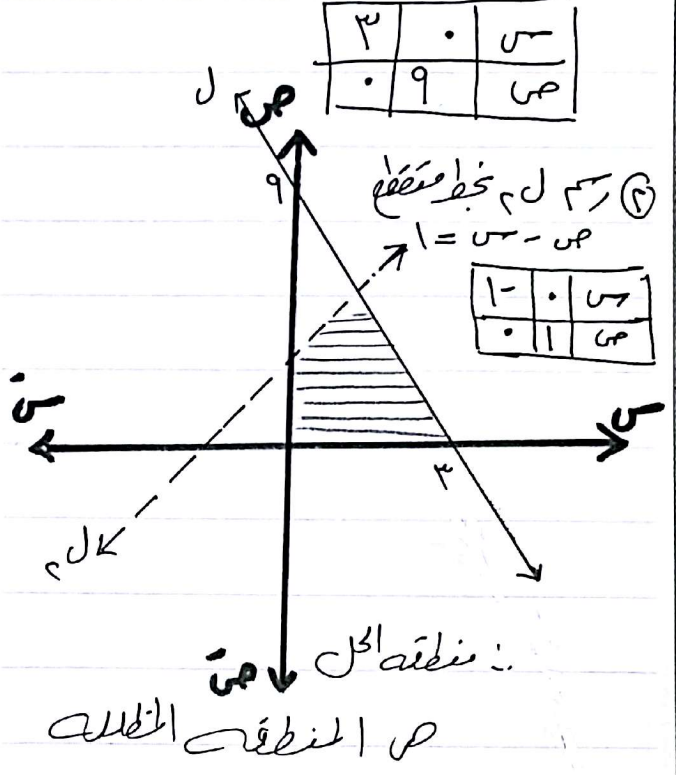 س | ٠ | ٣
ص | ٩ | ٠
ل
ص
٩
② رسم ل٢ بخط متقطع
ص - س = ١
س | ٠ | -١
ص | ١ | ٠
سَ
س
٣
ل٢
صَ
∴ منطقة الحل
ص المنطقة المظللة